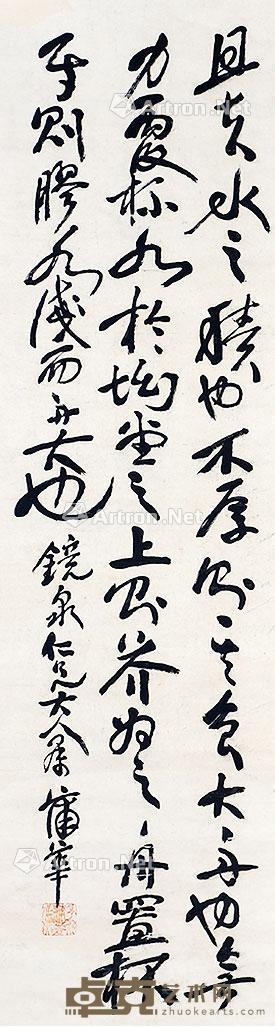 且夫水之積也不厚則其負大舟也無
力覆杯水於坳堂之上則芥為之舟置杯
焉則膠水淺而舟大也 鏡泉仁兄大人屬 蒲華
Artron.Net
Artron.Net
Artron.Net
Artron.Net
Artron.Net
卓克艺术网
zhuokearts.com